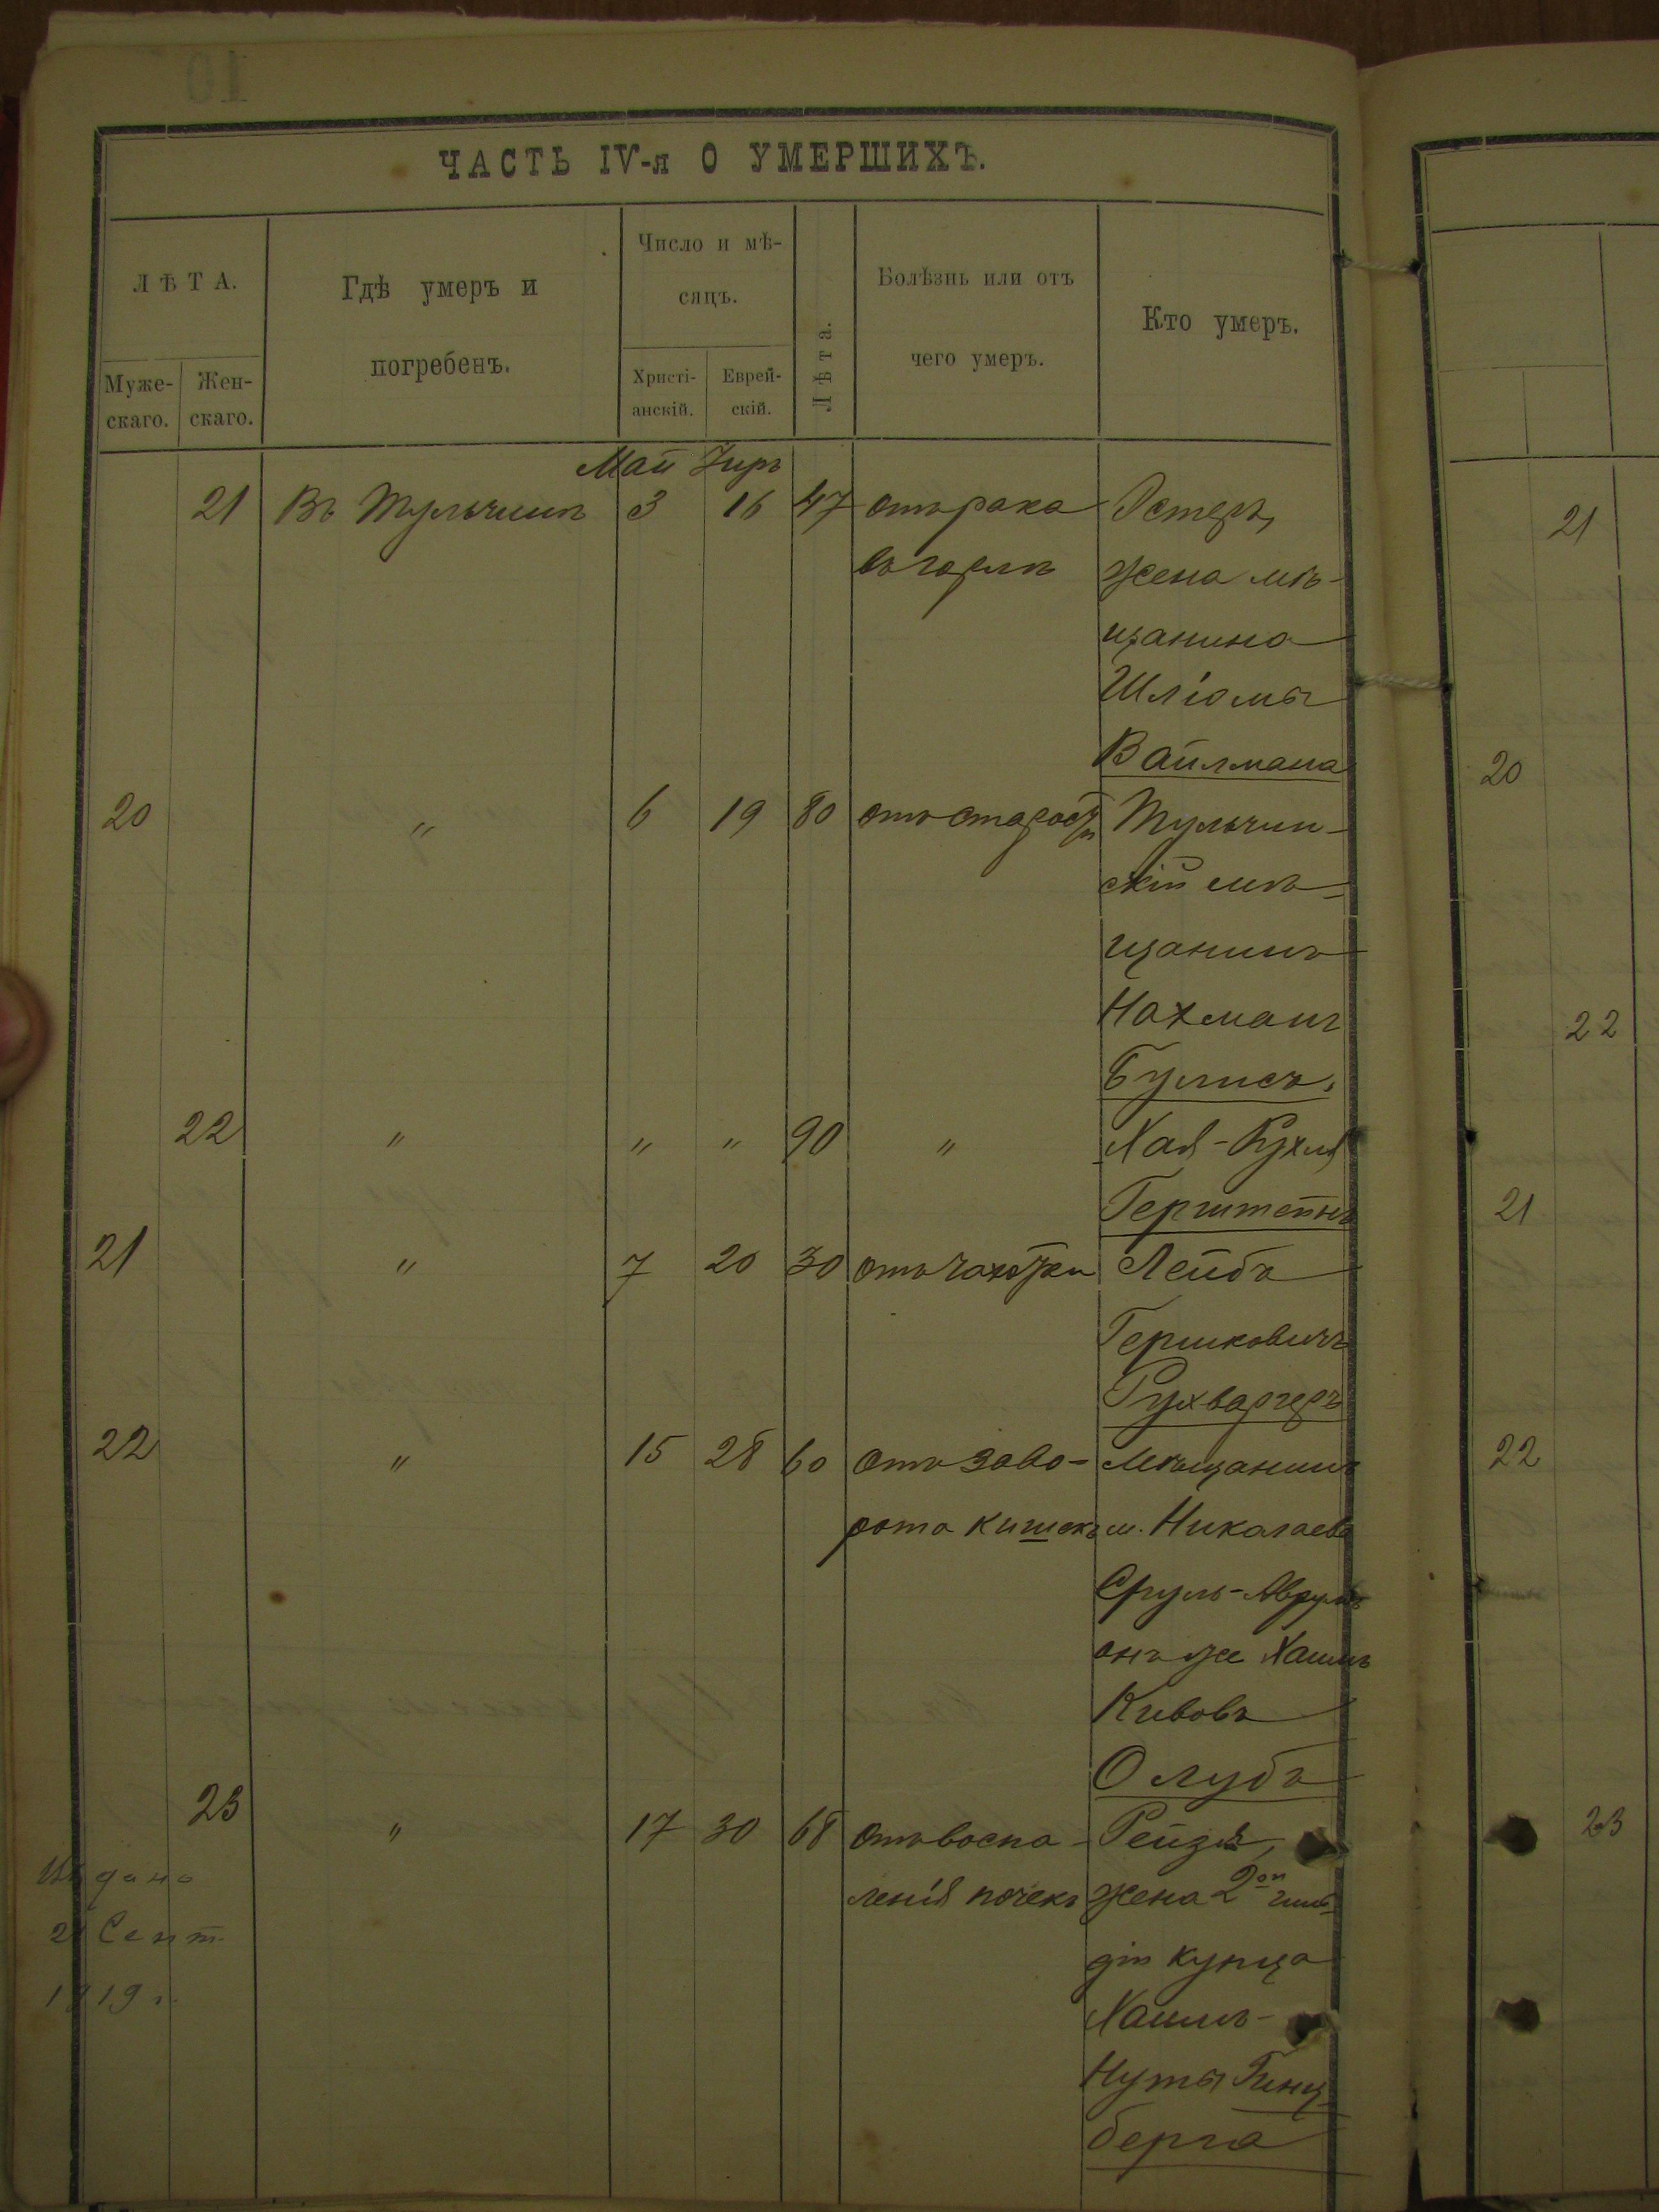 10
ЧАСТЬ IV-я О УМЕРШИХЪ.
ЛѢТА.
Муже-
скаго.
Жен-
скаго.
Гдѣ умеръ и
погребенъ.
Число и мѣ-
сяцъ.
Христі-
анскій.
Еврей-
скій.
Лѣта.
Болѣзнь или отъ
чего умеръ.
Кто умеръ.
Май Іиръ
21 Въ Тульчинѣ 3 16 47 отъ рака Эстеръ,
въ горлѣ жена мѣ-
щанина
Шліомы
Вайлмана
20 " 6 19 80 отъ старости Тульчин-
скій мѣ-
щанинъ
Нахманъ
Булисъ,
22 " " " 90 " Хая-Рухля
Герштейнъ
21 " 7 20 30 отъ чахотки Лейбъ
Гершковичъ
Рухваргеръ
22 " 15 28 60 отъ заво- Мѣщанинъ
рота кишекъ м. Николаева
Сруль-Аврумъ
онъ же Хаимъ
Кивовъ
Олубъ
23 " 17 30 68 отъ воспа- Рейзя,
ленія почекъ жена 2ой гиль-
діи купца
Хаимъ-
Нуты Гинц-
берга
Выдано
21 Сент.
1919 г.
21
20
22
21
22
23